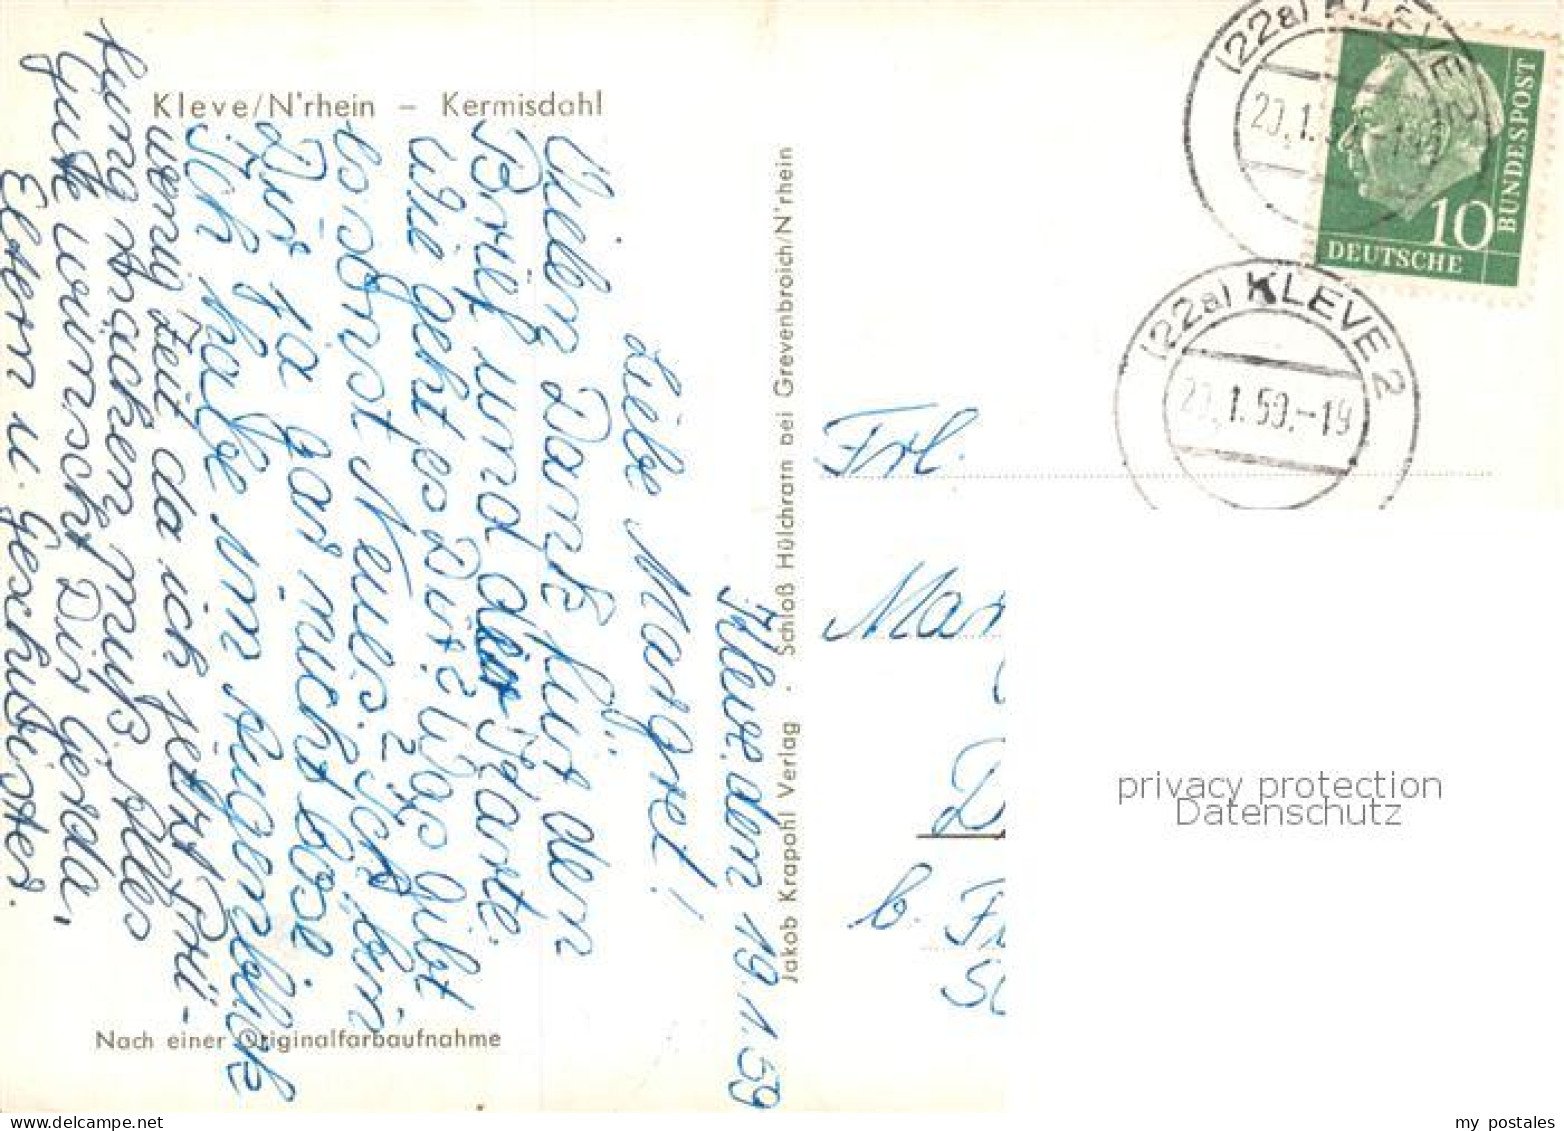 Kleve/N'rhein – Kermisdahl
Kleve den 19.1.59
Liebe Margret!
Vielen Dank für den
Brief und der Karte.
Wie geht es Dir? Was gibt
es sonst Neues? Ich bin
Dir ja gar nicht böse.
Ich habe im Augenblick
wenig Zeit da ich jetzt Prü-
fung machen muß. Alles
Gute wünscht Dir Gerda,
Eltern u. Geschwister.
Nach einer Originalfarbaufnahme
Jakob Krapohl Verlag · Schloß Hülchrath bei Grevenbroich/N'rhein
(22a) KLEVE 2
20.1.59.-19
10
DEUTSCHE
BUNDESPOST
(22a) KLEVE 2
20.1.59.-19
Frl.
Mar
D
b. Fr
privacy protection
Datenschutz
www.delcampe.net
my_postales